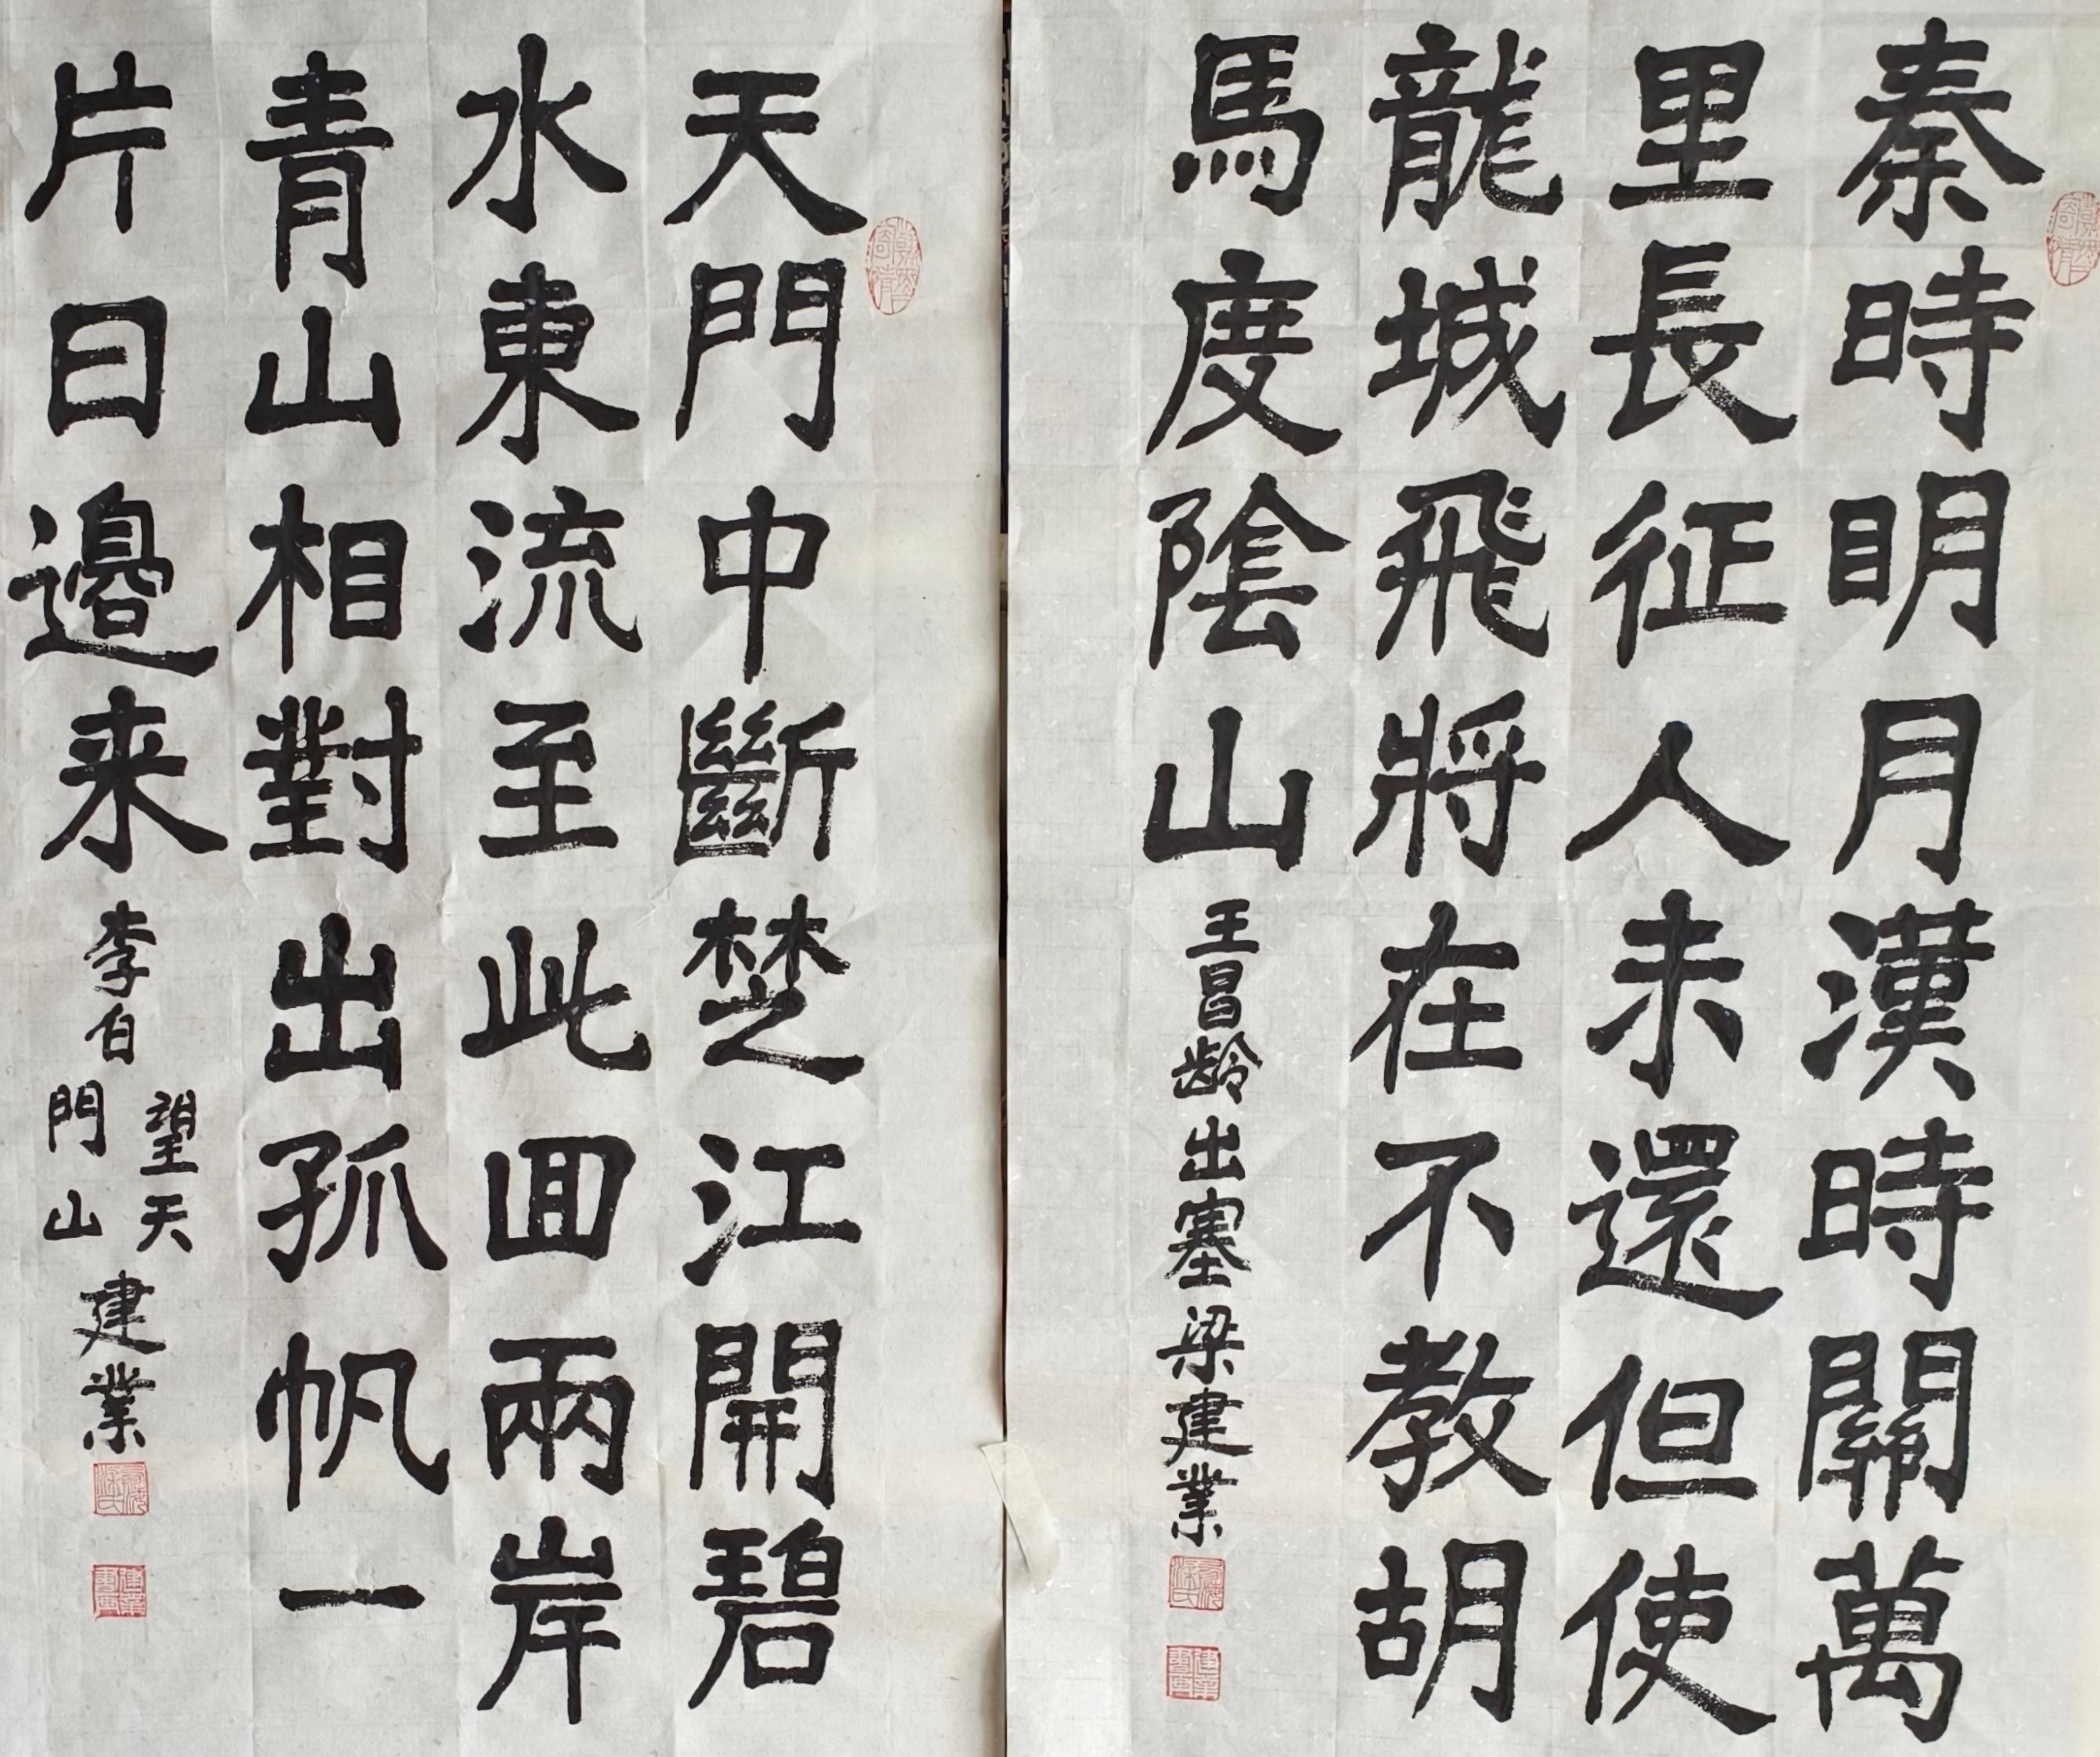 秦時明月漢時關萬
里長征人未還但使
龍城飛將在不教胡
馬度陰山
王昌龄出塞梁建業
天門中斷楚江開碧
水東流至此回兩岸
青山相對出孤帆一
片日邊来
李白
望天
門山
建業